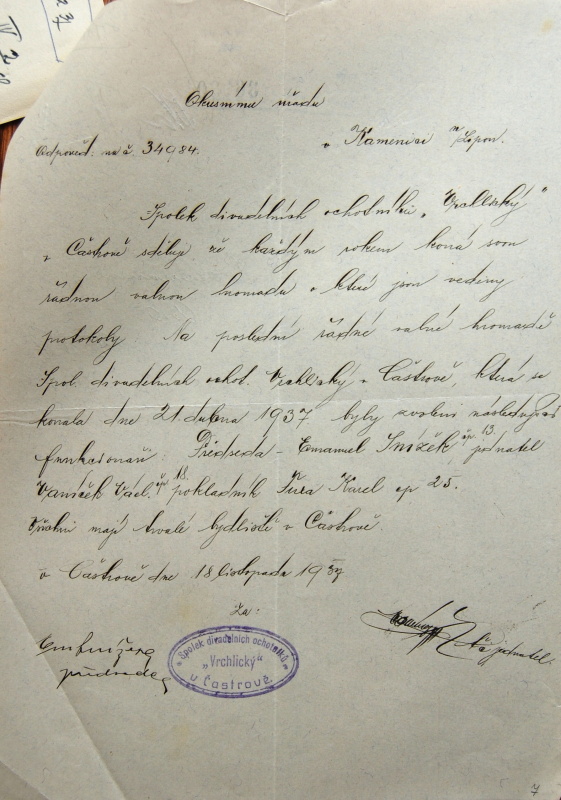 Okresnímu úřadu
Odpověď: na č. 34984.
v Kamenici n/Lipou.
Spolek divadelních ochotníků „Vrchlický"
v Částrově sděluje že každým rokem koná svou
řádnou valnou hromadu o které jsou vedeny
protokoly Na poslední řádné valné hromadě
Spol. divadelních ochot. Vrchlický v Částrově, která se
konala dne 21. dubna 1937 byly zvoleni následující
funkcionáři: Předseda – Emanuel Snížek čp 13. jednatel
Vaníček Václ. čp 18. pokladník Růža Karel čp 25.
Všichni mají trvalé bydliště v Částrově.
v Částrově dne 18 listopadu 1937
Za:
Em Snížek
předseda
jednatel.
Spolek divadelních ochotníků
„Vrchlický"
v Částrově.
7